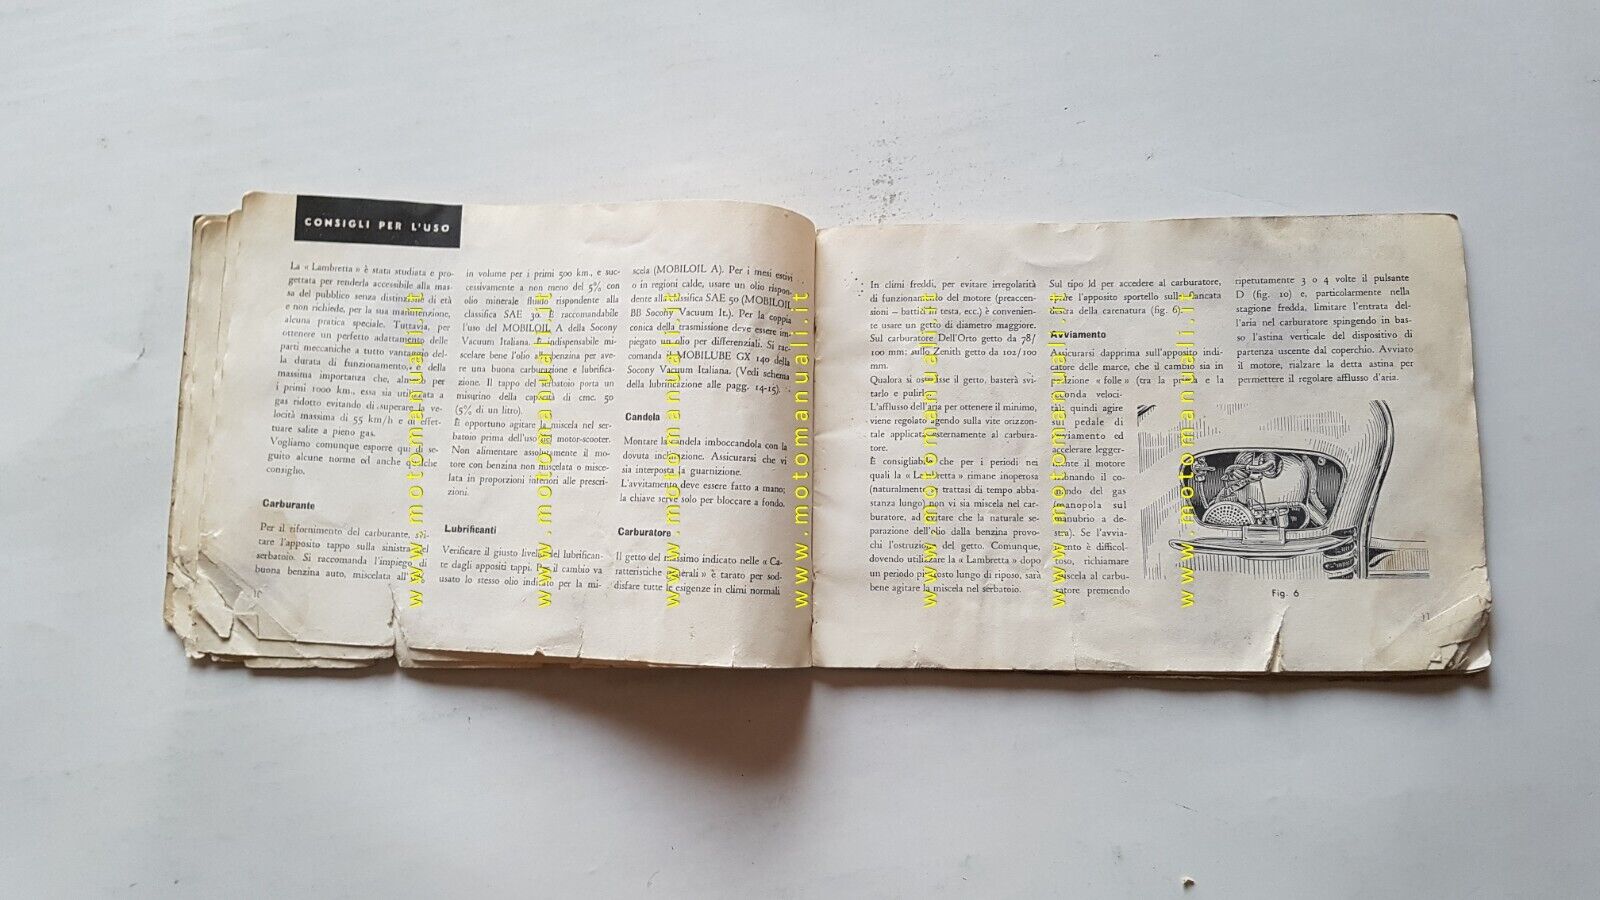 CONSIGLI PER L'USO
La « Lambretta » è stata studiata e pro-
gettata per renderla accessibile alla mas-
sa del pubblico senza distinzione di età
e non richiede, per la sua manutenzione,
alcuna pratica speciale. Tuttavia, per
ottenere un perfetto adattamento delle
parti meccaniche a tutto vantaggio del-
la durata di funzionamento, è della
massima importanza che, almeno per
i primi 1000 km., essa sia utilizzata a
gas ridotto evitando di superare la ve-
locità massima di 55 km/h e di effet-
tuare salite a pieno gas.
Vogliamo comunque esporre qui di se-
guito alcune norme ed anche qualche
consiglio.
Carburante
Per il rifornimento del carburante, svi-
tare l'apposito tappo sulla sinistra del
serbatoio. Si raccomanda l'impiego di
buona benzina auto, miscelata all'
10
in volume per i primi 500 km., e suc-
cessivamente a non meno del 5% con
olio minerale fluido rispondente alla
classifica SAE 30. È raccomandabile
l'uso del MOBILOIL A della Socony
Vacuum Italiana. È indispensabile mi-
scelare bene l'olio alla benzina per ave-
re una buona carburazione e lubrifica-
zione. Il tappo del serbatoio porta un
misurino della capacità di cmc. 50
(5% di un litro).
È opportuno agitare la miscela nel ser-
batoio prima dell'uso del motor-scooter.
Non alimentare assolutamente il mo-
tore con benzina non miscelata o misce-
lata in proporzioni inferiori alle prescri-
zioni.
Lubrificanti
Verificare il giusto livello del lubrifican-
te dagli appositi tappi. Per il cambio va
usato lo stesso olio indicato per la mi-
scela (MOBILOIL A). Per i mesi estivi
o in regioni calde, usare un olio rispon-
dente alla classifica SAE 50 (MOBILOIL
BB Socony Vacuum It.). Per la coppia
conica della trasmissione deve essere im-
piegato un olio per differenziali. Si rac-
comanda il MOBILUBE GX 140 della
Socony Vacuum Italiana. (Vedi schema
della lubrificazione alle pagg. 14-15).
Candela
Montare la candela imboccandola con la
dovuta inclinazione. Assicurarsi che vi
sia interposta la guarnizione.
L'avvitamento deve essere fatto a mano;
la chiave serve solo per bloccare a fondo.
Carburatore
Il getto del massimo indicato nelle « Ca-
ratteristiche generali » è tarato per sod-
disfare tutte le esigenze in climi normali
In climi freddi, per evitare irregolarità
di funzionamento del motore (preaccen-
sioni – battiti in testa, ecc.) è convenien-
te usare un getto di diametro maggiore.
Sul carburatore Dell'Orto getto da 78/
100 mm; sullo Zenith getto da 102/100
mm.
Qualora si ostruisse il getto, basterà svi-
tarlo e pulirlo.
L'afflusso dell'aria per ottenere il minimo,
viene regolato agendo sulla vite orizzon-
tale applicata esternamente al carbura-
tore.
È consigliabile che per i periodi nei
quali la « Lambretta » rimane inoperosa
(naturalmente se trattasi di tempo abba-
stanza lungo) non vi sia miscela nel car-
buratore, ad evitare che la naturale se-
parazione dell'olio dalla benzina provo-
chi l'ostruzione del getto. Comunque,
dovendo utilizzare la « Lambretta » dopo
un periodo piuttosto lungo di riposo, sarà
bene agitare la miscela nel serbatoio.
Sul tipo ld per accedere al carburatore,
aprire l'apposito sportello sulla fiancata
destra della carenatura (fig. 6).
Avviamento
Assicurarsi dapprima sull'apposito indi-
catore delle marce, che il cambio sia in
posizione « folle » (tra la prima e la
seconda veloci-
tà), quindi agire
sul pedale di
avviamento ed
accelerare legger-
mente il motore
azionando il co-
mando del gas
(manopola sul
manubrio a de-
stra). Se l'avvia-
mento è difficol-
toso, richiamare
miscela al carbu-
ratore premendo
ripetutamente 3 o 4 volte il pulsante
D (fig. 10) e, particolarmente nella
stagione fredda, limitare l'entrata del-
l'aria nel carburatore spingendo in bas-
so l'astina verticale del dispositivo di
partenza uscente dal coperchio. Avviato
il motore, rialzare la detta astina per
permettere il regolare afflusso d'aria.
Fig. 6
11
www.motomanuali.it
www.motomanuali.it
www.motomanuali.it
www.motomanuali.it
www.motomanuali.it
www.motomanuali.it
www.motomanuali.it